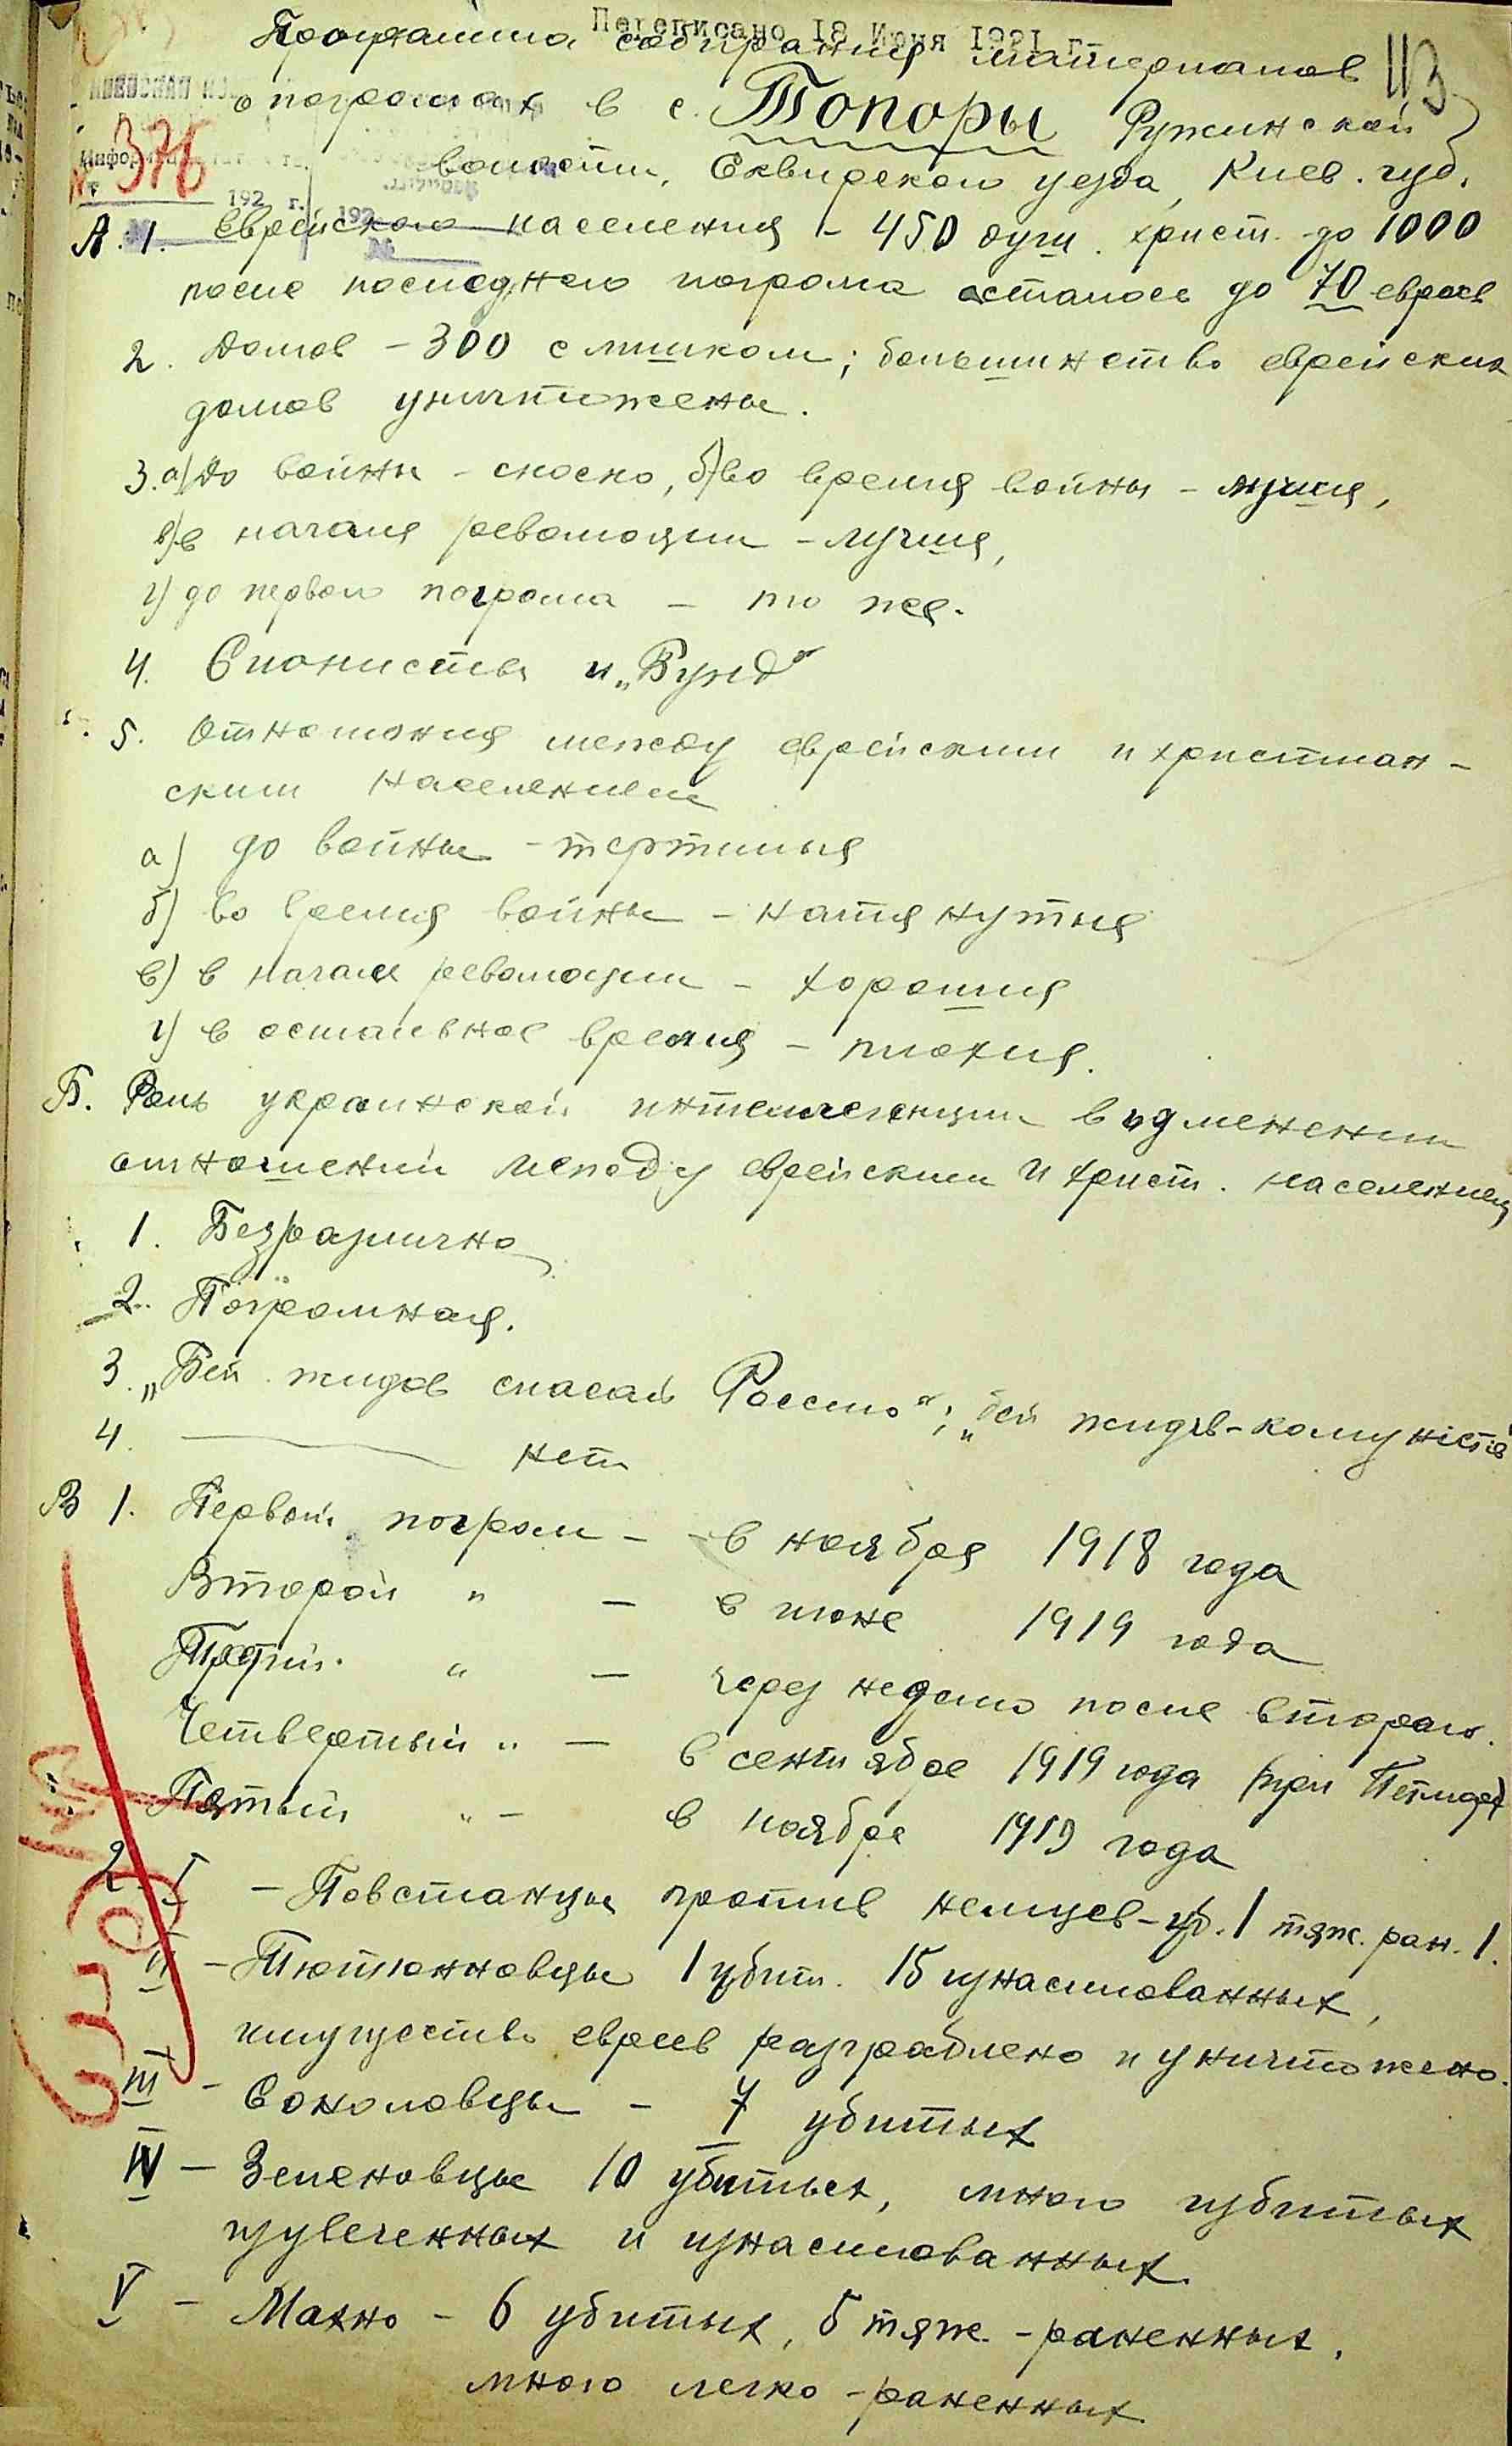 Переписано 18 Июня 1921 г.
Программа собирания материалов 113
о погромах в с. Топоры Ружинской
376
волости, Сквирского уезда, Киев. губ.
192 г. 192
№
А. 1. Еврейского населения – 450 душ. христ. до 1000
после последнего погрома осталось до 70 евреев
2. Домов – 300 с лишком; большинство еврейских
домов уничтожены.
3. а) До войны – сносно, б) во время войны – лучше,
в) в начале революции – лучше,
г) до первого погрома – то же.
4. Сионисты и „Бунд“
5. Отношения между еврейским и христиан-
ским населением
а) до войны – терпимыя
б) во время войны – натянутыя
в) в начале революции – хорошия
г) в остальное время – плохия.
Б. Роль украинской интеллегенции в изменении
отношений между еврейским и христ. населением
1. Безразлично
2. Погромная.
3. „Бей жидов спасай Россию“; „бей жидів-комуністів
4. нет
В 1. Первый погром – в ноября 1918 года
Второй " – в июне 1919 года
Третий " – через неделю после второго.
Четвертый " – в сентябре 1919 года (при Петлюре)
Пятый " – в ноябре 1919 года
2. I – Повстанцы против немцев – уб. 1 тяж. ран. 1.
II – Тютюнновцы 1 убит. 15 изнасилованных,
имущество евреев разграблено и уничтожено.
III – Соколовцы – 7 убитых
IV – Зеленовцы 10 убитых, много избитых
изувеченных и изнасилованных.
V – Махно – 6 убитых, 5 тяж. – раненных,
много легко – раненных.